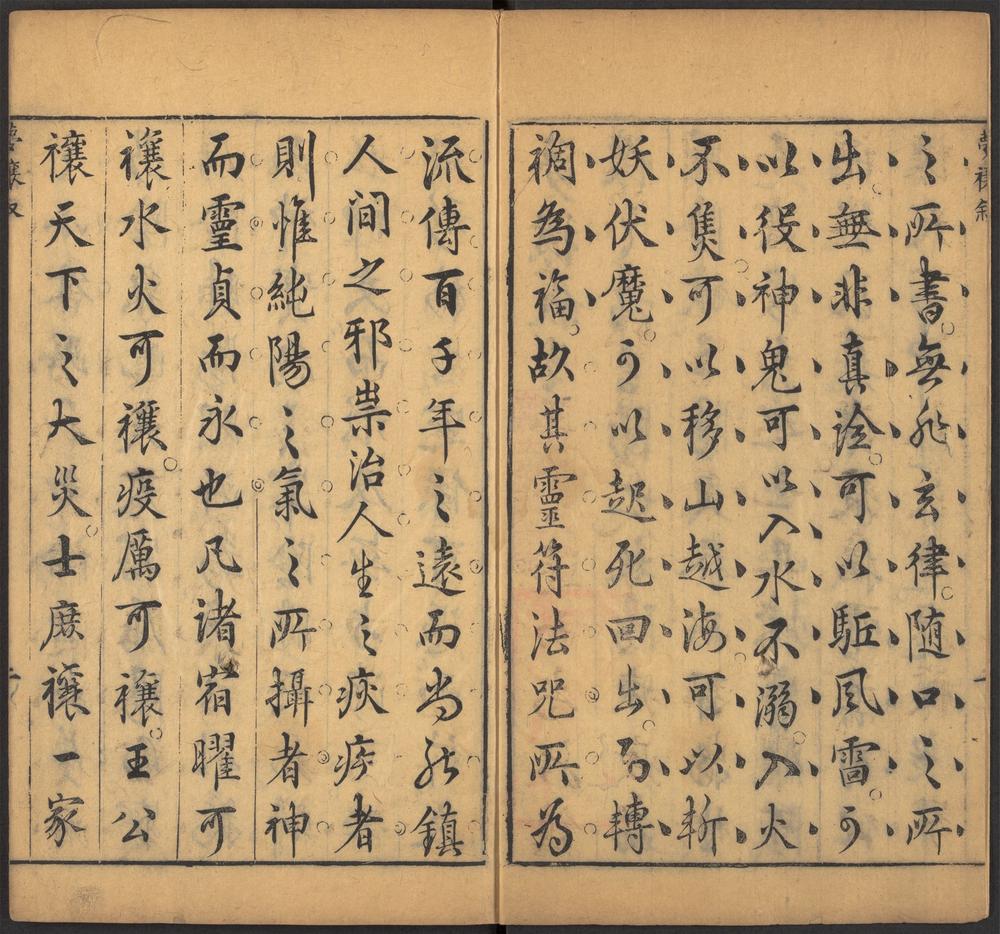 之所書無非玄律随口之所
出無非真詮可以驅風雷可
以役神鬼可以入水不溺入火
不焦可以移山越海可以斬
妖伏魔可以起死回生可轉
禍為福故其靈符法咒所為
流傳百千年之遠而尚能鎮
人間之邪祟治人生之疾疢者
則惟純陽之氣之所攝者神
而靈貞而永也凡諸宿曜可
禳水火可禳疫厲可禳王公
禳天下之大災士庶禳一家